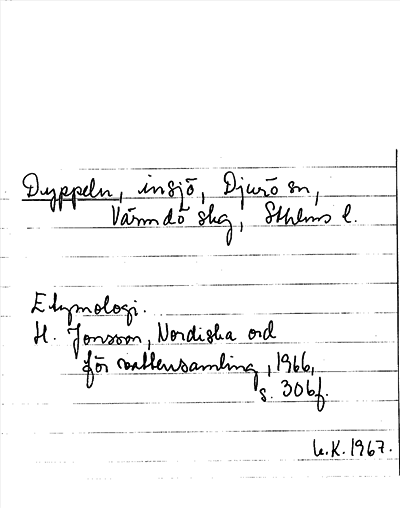 Dyppeln, insjö, Djurö sn,
Värmdö skg, Sthlms l.
Etymologi.
H. Jonsson, Nordiska ord
för vattensamling, 1966,
s. 306f.
U.K. 1967.